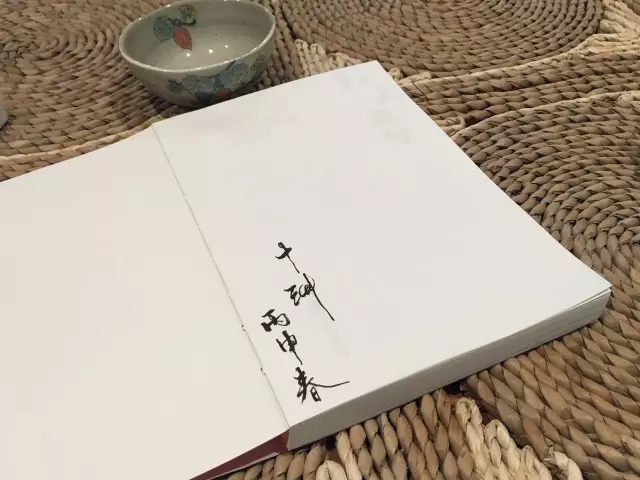 十翀
丙申春